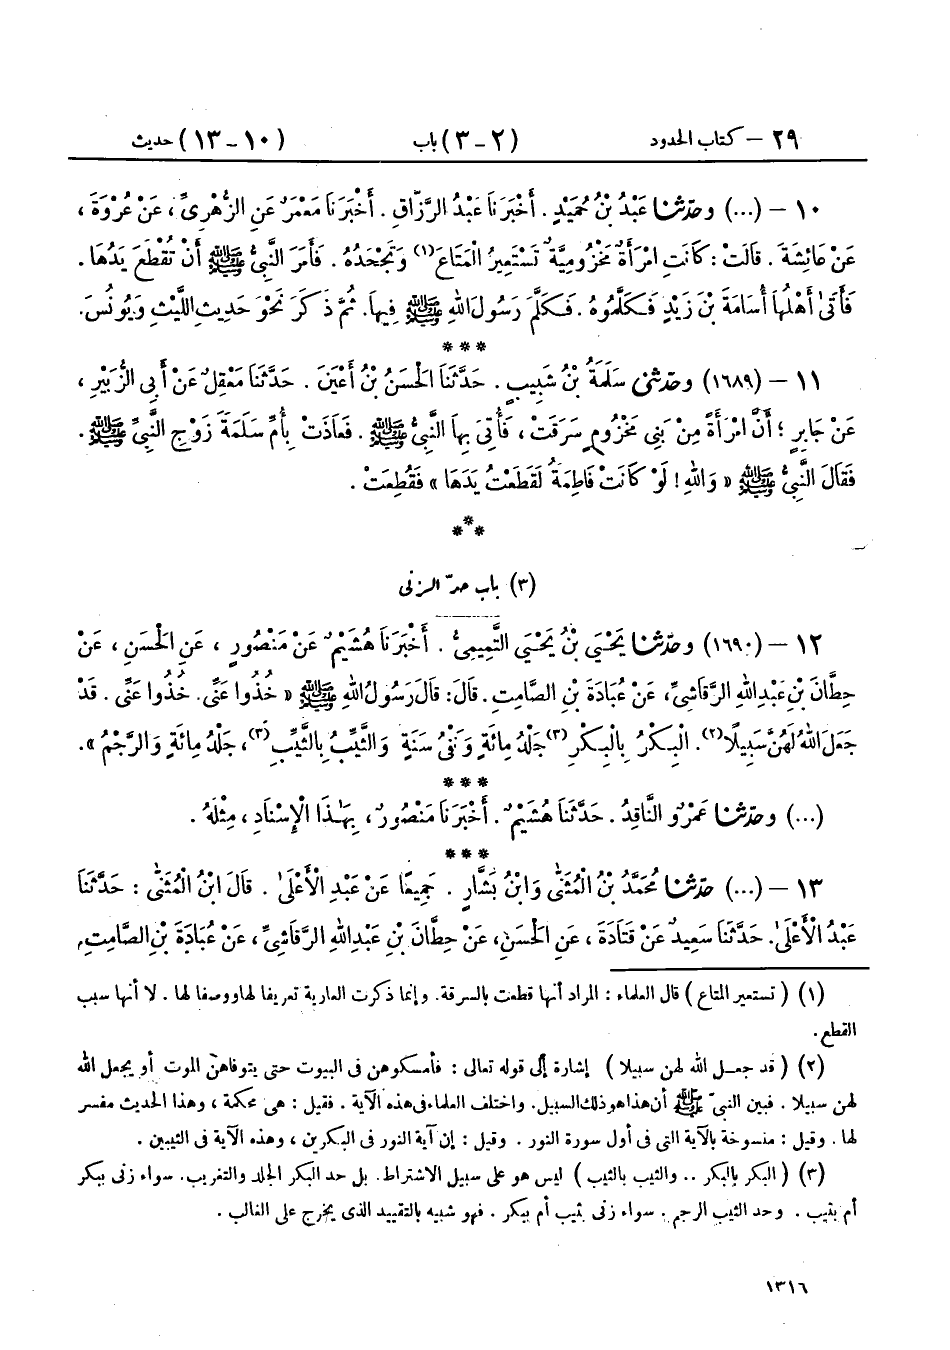 ٢٩ – كتاب الحدود (٢ – ٣) باب (١٠ – ١٣) حديث
١٠ – (...) وحَدَّثَنَا عَبْدُ بْنُ حُمَيْدٍ . أَخْبَرَنَا عَبْدُ الرَّزَّاقِ . أَخْبَرَنَا مَعْمَرٌ عَنِ الزُّهْرِيِّ ، عَنْ عُرْوَةَ ،
عَنْ عَائِشَةَ . قَالَتْ : كَانَتِ امْرَأَةٌ مَخْزُومِيَّةٌ تَسْتَعِيرُ الْمَتَاعَ (١) وَتَجْحَدُهُ . فَأَمَرَ النَّبِيُّ ﷺ أَنْ تُقْطَعَ يَدُهَا .
فَأَتَىٰ أَهْلُهَا أُسَامَةَ بْنَ زَيْدٍ فَكَلَّمُوهُ . فَكَلَّمَ رَسُولَ اللهِ ﷺ فِيهَا. ثُمَّ ذَكَرَ نَحْوَ حَدِيثِ اللَّيْثِ وَيُونُسَ.
* * *
١١ – (١٦٨٩) وحَدَّثَنِي سَلَمَةُ بْنُ شَبِيبٍ . حَدَّثَنَا الْحَسَنُ بْنُ أَعْيَنَ . حَدَّثَنَا مَعْقِلٌ عَنْ أَبِي الزُّبَيْرِ ،
عَنْ جَابِرٍ ؛ أَنَّ امْرَأَةً مِنْ بَنِي مَخْزُومٍ سَرَقَتْ ، فَأُتِيَ بِهَا النَّبِيُّ ﷺ . فَعَاذَتْ بِأُمِّ سَلَمَةَ زَوْجِ النَّبِيِّ ﷺ .
فَقَالَ النَّبِيُّ ﷺ « وَاللهِ ! لَوْ كَانَتْ فَاطِمَةُ لَقَطَعْتُ يَدَهَا » فَقُطِعَتْ .
* * *
(٣) باب حدّ الزنى
١٢ – (١٦٩٠) وحَدَّثَنَا يَحْيَىٰ بْنُ يَحْيَىٰ التَّمِيمِيُّ . أَخْبَرَنَا هُشَيْمٌ عَنْ مَنْصُورٍ ، عَنِ الْحَسَنِ ، عَنْ
حِطَّانَ بْنِ عَبْدِ اللهِ الرَّقَاشِيِّ، عَنْ عُبَادَةَ بْنِ الصَّامِتِ . قَالَ: قَالَ رَسُولُ اللهِ ﷺ « خُذُوا عَنِّي. خُذُوا عَنِّي . قَدْ
جَعَلَ اللهُ لَهُنَّ سَبِيلًا (٢). الْبِكْرُ بِالْبِكْرِ (٣) جَلْدُ مِائَةٍ وَنَفْيُ سَنَةٍ وَالثَّيِّبُ بِالثَّيِّبِ (٣)، جَلْدُ مِائَةٍ وَالرَّجْمُ ».
* * *
(...) وحَدَّثَنَا عَمْرٌو النَّاقِدُ . حَدَّثَنَا هُشَيْمٌ . أَخْبَرَنَا مَنْصُورٌ ، بِهَٰذَا الْإِسْنَادِ ، مِثْلَهُ .
* * *
١٣ – (...) حَدَّثَنَا مُحَمَّدُ بْنُ الْمُثَنَّىٰ وَابْنُ بَشَّارٍ . جَمِيعًا عَنْ عَبْدِ الْأَعْلَىٰ . قَالَ ابْنُ الْمُثَنَّىٰ : حَدَّثَنَا
عَبْدُ الْأَعْلَىٰ. حَدَّثَنَا سَعِيدٌ عَنْ قَتَادَةَ ، عَنِ الْحَسَنِ، عَنْ حِطَّانَ بْنِ عَبْدِ اللهِ الرَّقَاشِيِّ، عَنْ عُبَادَةَ بْنِ الصَّامِتِ.
(١) ( تستعير المتاع ) قال العلماء : المراد أنها قطعت بالسرقة. وإنما ذكرت العارية تعريفا لها ووصفا لها . لا أنها سبب
القطع.
(٢) ( قد جعل الله لهن سبيلا ) إشارة إلى قوله تعالى : فأمسكوهن فى البيوت حتى يتوفاهنّ الموت أو يجعل الله
لهن سبيلا . فبين النبيّ ﷺ أن هذا هو ذلك السبيل. واختلف العلماء فى هذه الآية . فقيل : هى محكمة ، وهذا الحديث مفسر
لها . وقيل : منسوخة بالآية التى فى أول سورة النور . وقيل : إن آية النور فى البكرين ، وهذه الآية فى الثيبين .
(٣) ( البكر بالبكر .. والثيب بالثيب ) ليس هو على سبيل الاشتراط. بل حد البكر الجلد والتغريب. سواء زنى ببكر
أم بثيب . وحد الثيب الرجم . سواء زنى بثيب أم ببكر . فهو شبيه بالتقييد الذى يخرج على الغالب .
١٣١٦